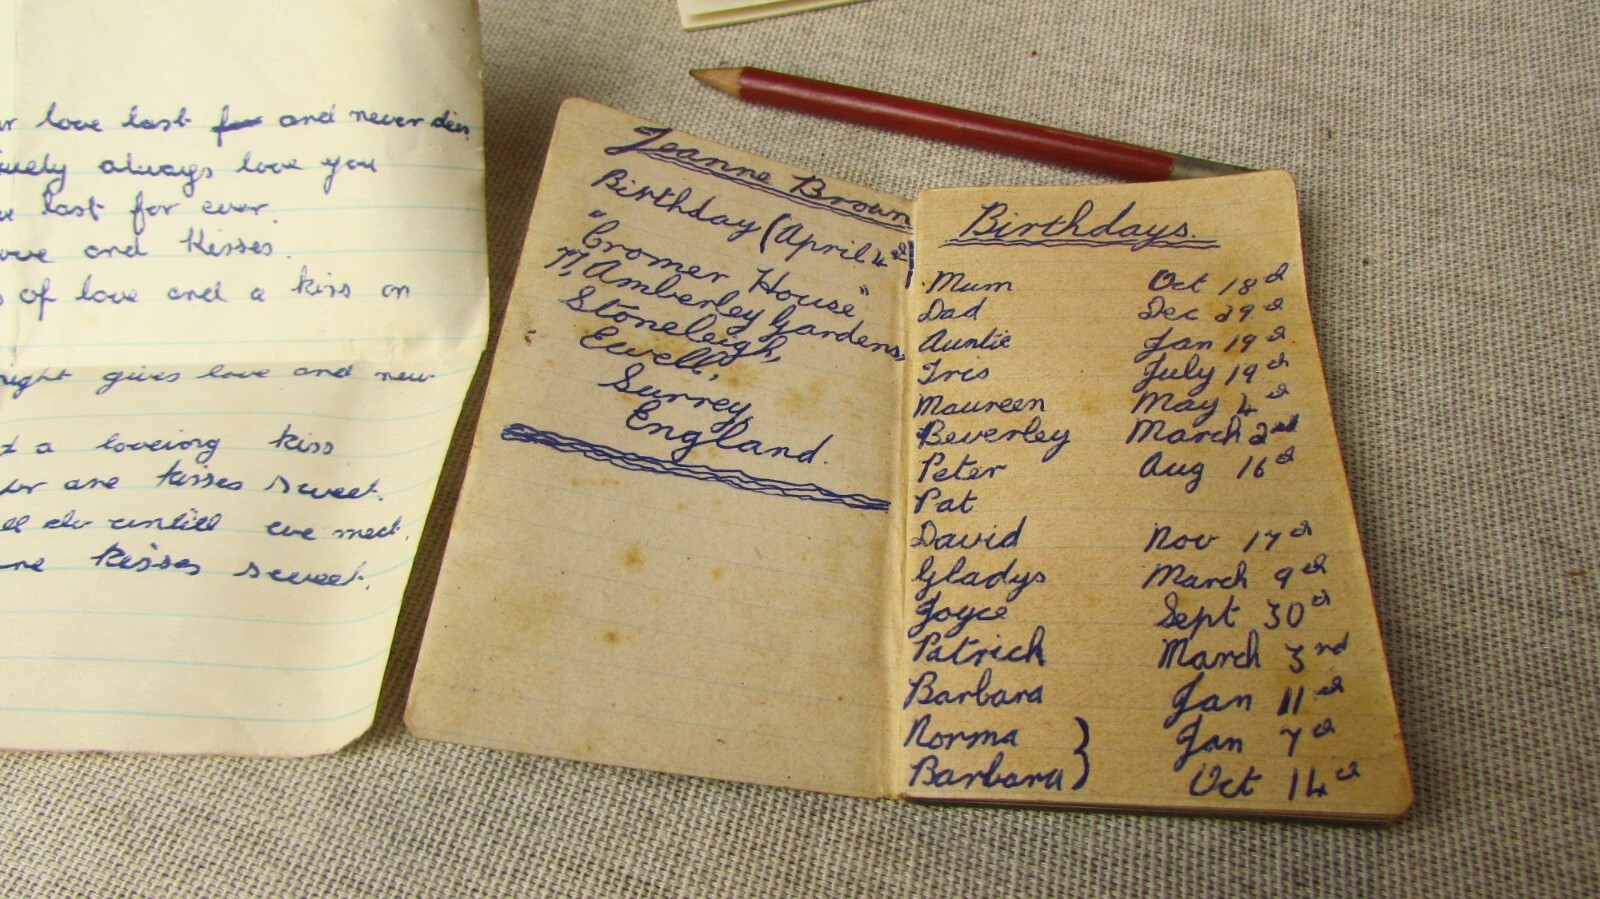 love last for and never dies
always love you
last for ever.
and Kisses.
of love and a kiss on
gives love and new
a loveing kiss
are kisses sweet.
untill we meet.
kisses sweet.
Jeanne Brown
Birthday (April 4th)
"Cromer House"
77, Amberley Gardens,
Stoneleigh,
Ewell,
Surrey,
England.
Birthdays.
Mum Oct 18th
Dad Dec 29th
Auntie Jan 19th
Iris July 19th
Maureen May 4th
Beverley March 2nd
Peter Aug 16th
Pat
David Nov 17th
Gladys March 9th
Joyce Sept 30th
Patrick March 3rd
Barbara Jan 11th
Norma } Jan 7th
Barbara } Oct 14th